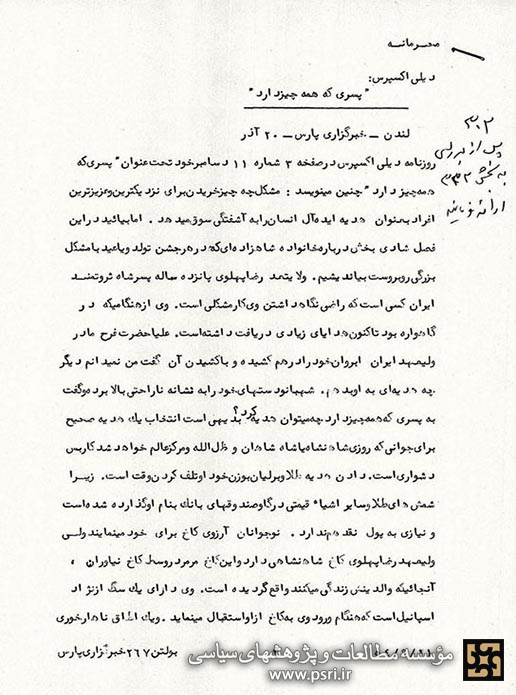 محرمانه
دیلی اکسپرس:
"پسری که همه چیز دارد"
لندن – خبرگزاری پارس – ۲۰ آذر
روزنامه دیلی اکسپرس در صفحه ۳ شماره ۱۱ دسامبر خود تحت عنوان "پسری که
همه چیز دارد" چنین مینویسد: مشکل چه چیز خریدن برای نزدیکترین و عزیزترین
افراد بعنوان هدیه ایده آل انسان را به آشفتگی سوق میدهد. اما بیائید در این
فصل شادی بخش درباره خانواده شاهزاده ای که در هر جشن تولد ویا عید با مشکل
بزرگی روبروست بیاندیشیم. ولایتعهد رضا پهلوی پانزده ساله پسر شاه ثروتمند
ایران کسی است که راضی نگاهداشتن وی کار مشکلی است. وی از هنگامیکه در
گاهواره بود تاکنون هدایای زیادی دریافت داشته است. علیاحضرت فرح مادر
ولیعهد ایران ابروان خود را درهم کشیده و با کشیدن آن گفت من نمیدانم دیگر
چه هدیه ای به او بدهم. شهبانو دستهای خود را به نشانه ناراحتی بالا برده و گفت
به پسری که همه چیز دارد چه میتوان هدیه کرد؟ بدیهی است انتخاب یك هدیه صحیح
برای جوانی که روزی شاهنشاه یا شاه شاهان و ظل الله و مرکز عالم خواهد شد کار بس
دشواری است. دادن هدیه طلا و برلیان بوزن خود او تلف کردن وقت است. زیرا
شمش های طلا و سایر اشیاء قیمتی در گاوصندوقهای بانك بنام او گذارده شده است
و نیازی به پول نقد هم ندارد. نوجوانان آرزوی کاخ برای خود مینمایند ولی
ولیعهد رضا پهلوی کاخ شاهنشاهی دارد و این کاخ مرمر در وسط کاخ نیاوران،
آنجائیکه والدینش زندگی میکنند واقع گردیده است. وی دارای یك سگ از نژاد
اسپانیل است که هنگام ورود وی به کاخ از او استقبال مینماید. ویك اطاق ناهارخوری
بولتن ۲۶۷ خبرگزاری پارس
۳۰۲
پس از بررسی
به بخش ۳۳۲
ارائه فرمائید
مؤسسه مطالعات و پژوهشهای سیاسی
www.psri.ir